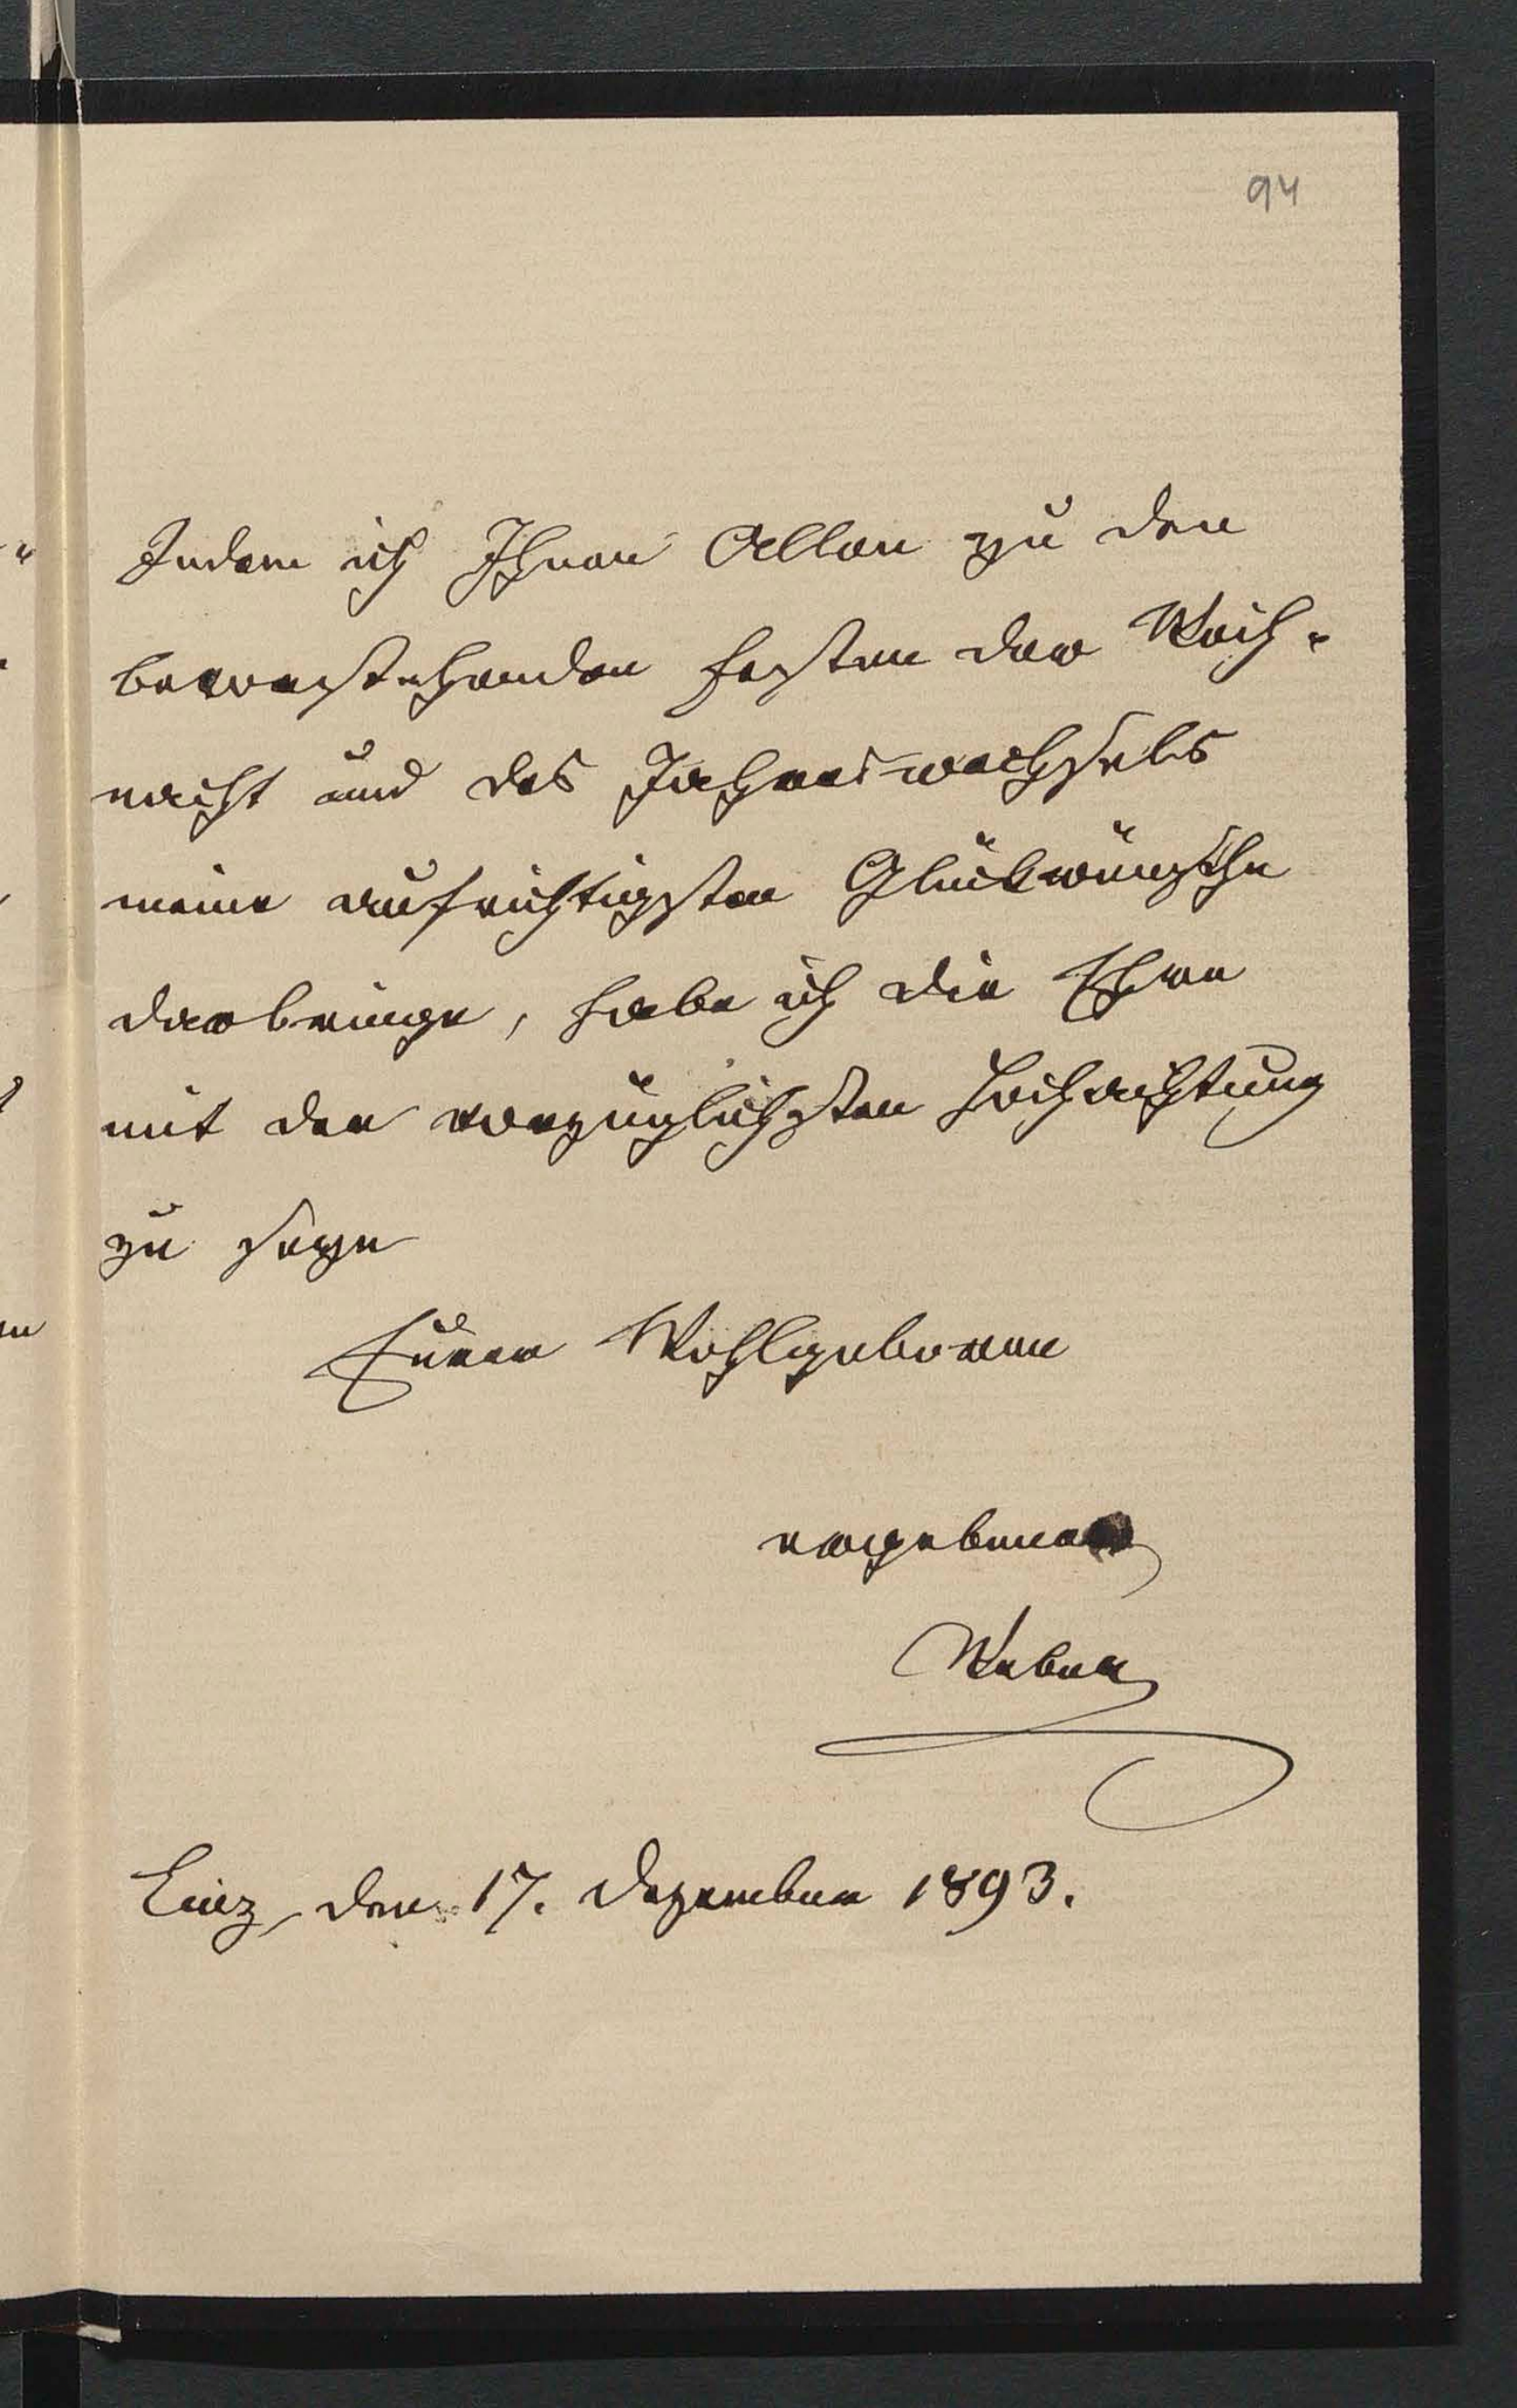 94
Indem ich Ihnen Allen zu den
bevorstehenden Festen der Weih-
nacht und des Jahreswechsels
meine aufrichtigsten Glückwünsche
darbringe, habe ich die Ehre
mit der vorzüglichsten Hochachtung
zu seyn
Euerer Wohlgeboren
ergebener
Weber
Linz, den 17. Dezember 1893.